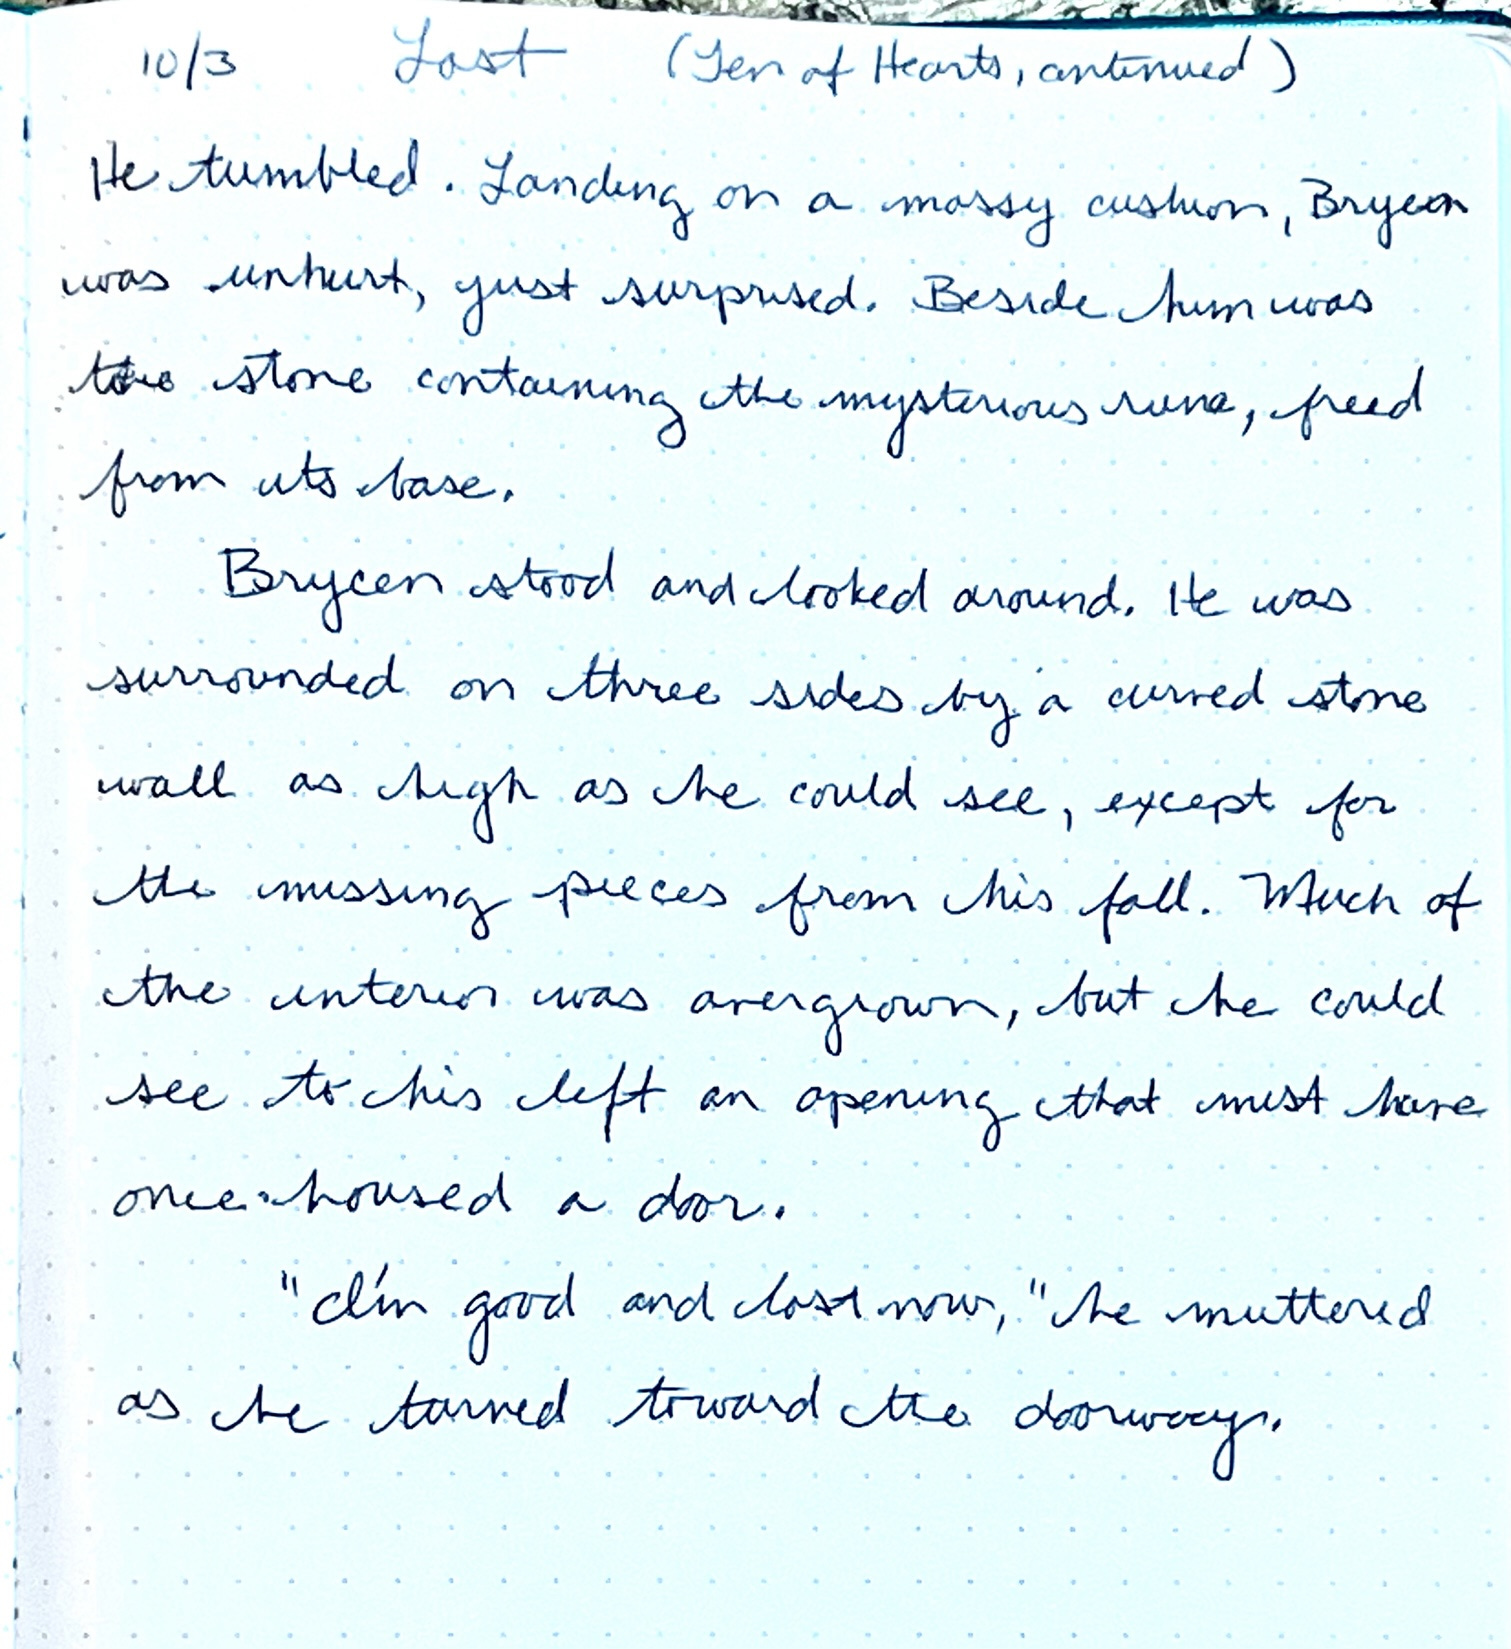 10/3 Lost (Ten of Hearts, continued)
He tumbled. Landing on a mossy cushion, Brycen
was unhurt, just surprised. Beside him was
the stone containing the mysterious rune, freed
from its base.
Brycen stood and looked around. He was
surrounded on three sides by a curved stone
wall as high as he could see, except for
the missing pieces from his fall. Much of
the interior was overgrown, but he could
see to his left an opening that must have
once housed a door.
"I'm good and lost now," he muttered
as he turned toward the doorway.